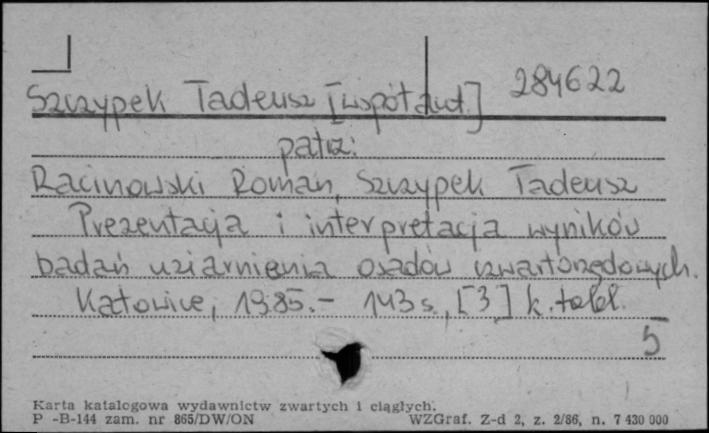 Szczypek Tadeusz [współaut.] 284622
patrz:
Racinowski Roman, Szczypek Tadeusz
Prezentacja i interpretacja wyników
badań uziarnienia osadów czwartorzędowych.
Katowice, 1985.- 143 s., [3] k. tabl.
5
Karta katalogowa wydawnictw zwartych i ciągłych.
P -B-144 zam. nr 865/DW/ON WZGraf. Z-d 2, z. 2/86, n. 7 430 000